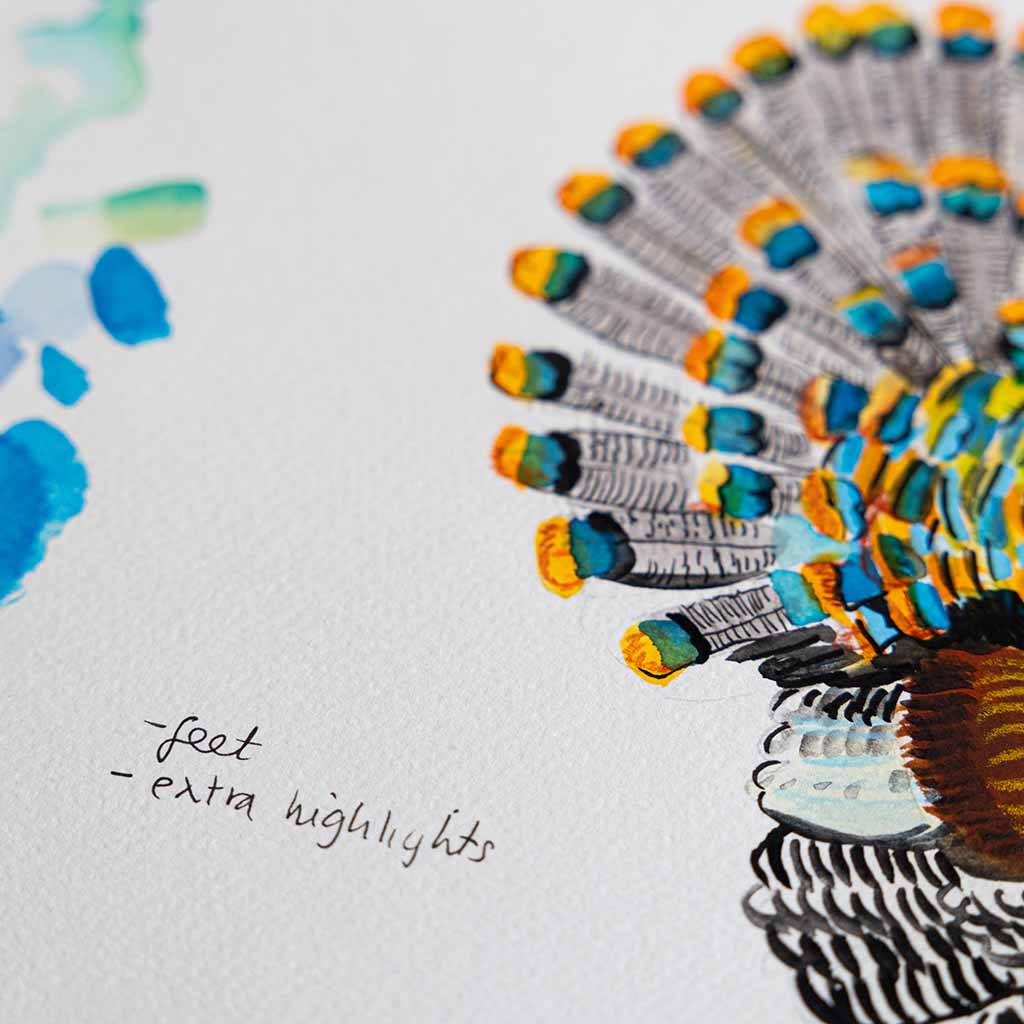 -feet
- extra highlights